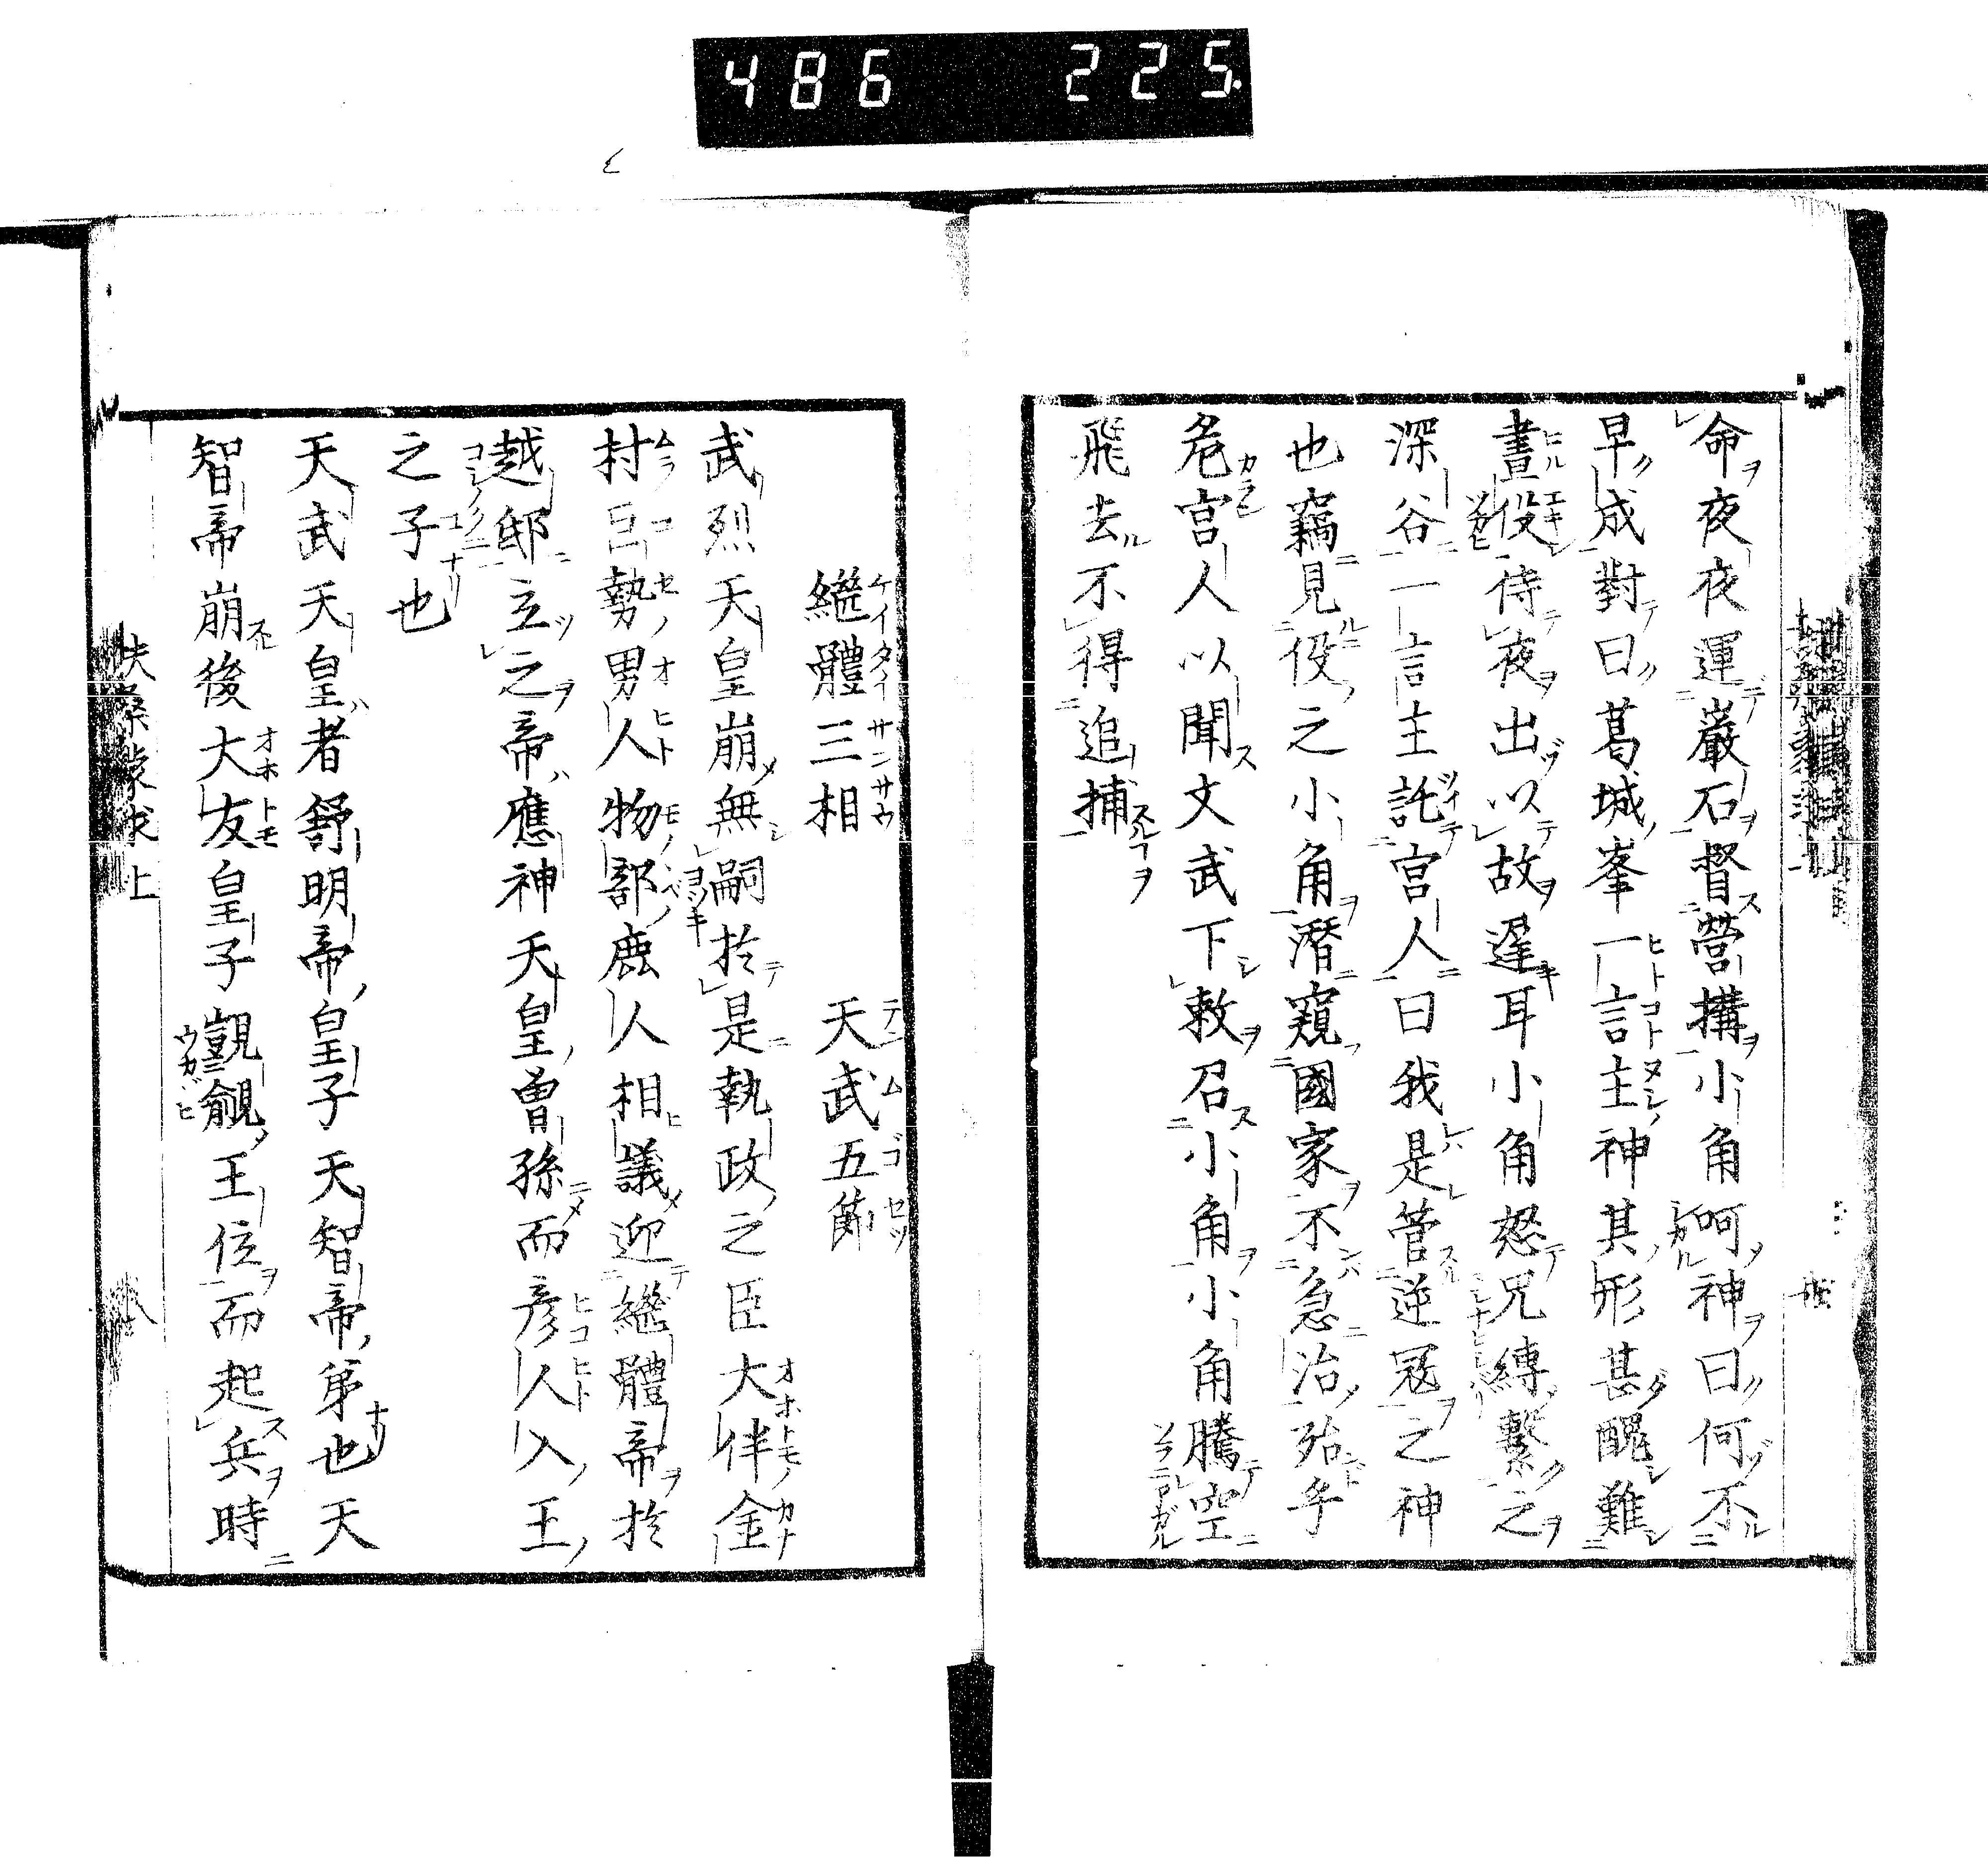 486 225.
命夜夜運巖石督營搆小角呵神曰何不
早成對曰葛城峯一言主神其形甚醜難
晝役待夜出以故遲耳小角怒咒縛繫之
深谷一言主託宮人曰我是管逆冦之神
也竊見役之小角潛窺國家不急治殆乎
危宮人以聞文武下敕召小角小角騰空
飛去不得追捕
繼體三相 天武五節
武烈天皇崩無嗣於是執政之臣大伴金
村巨勢男人物部鹿人相議迎繼體帝於
越邸立之帝應神天皇曾孫而彥人入王
之子也
天武天皇者舒明帝皇子天智帝第也天
智帝崩後大友皇子覬覦王位而起兵時
扶桑蒙求上 八